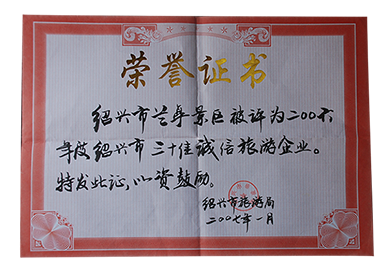 荣誉证书
绍兴市兰亭景区被评为二00六
年度绍兴市三十佳诚信旅游企业。
特发此证，以资鼓励。
绍兴市旅游局
二00七年一月